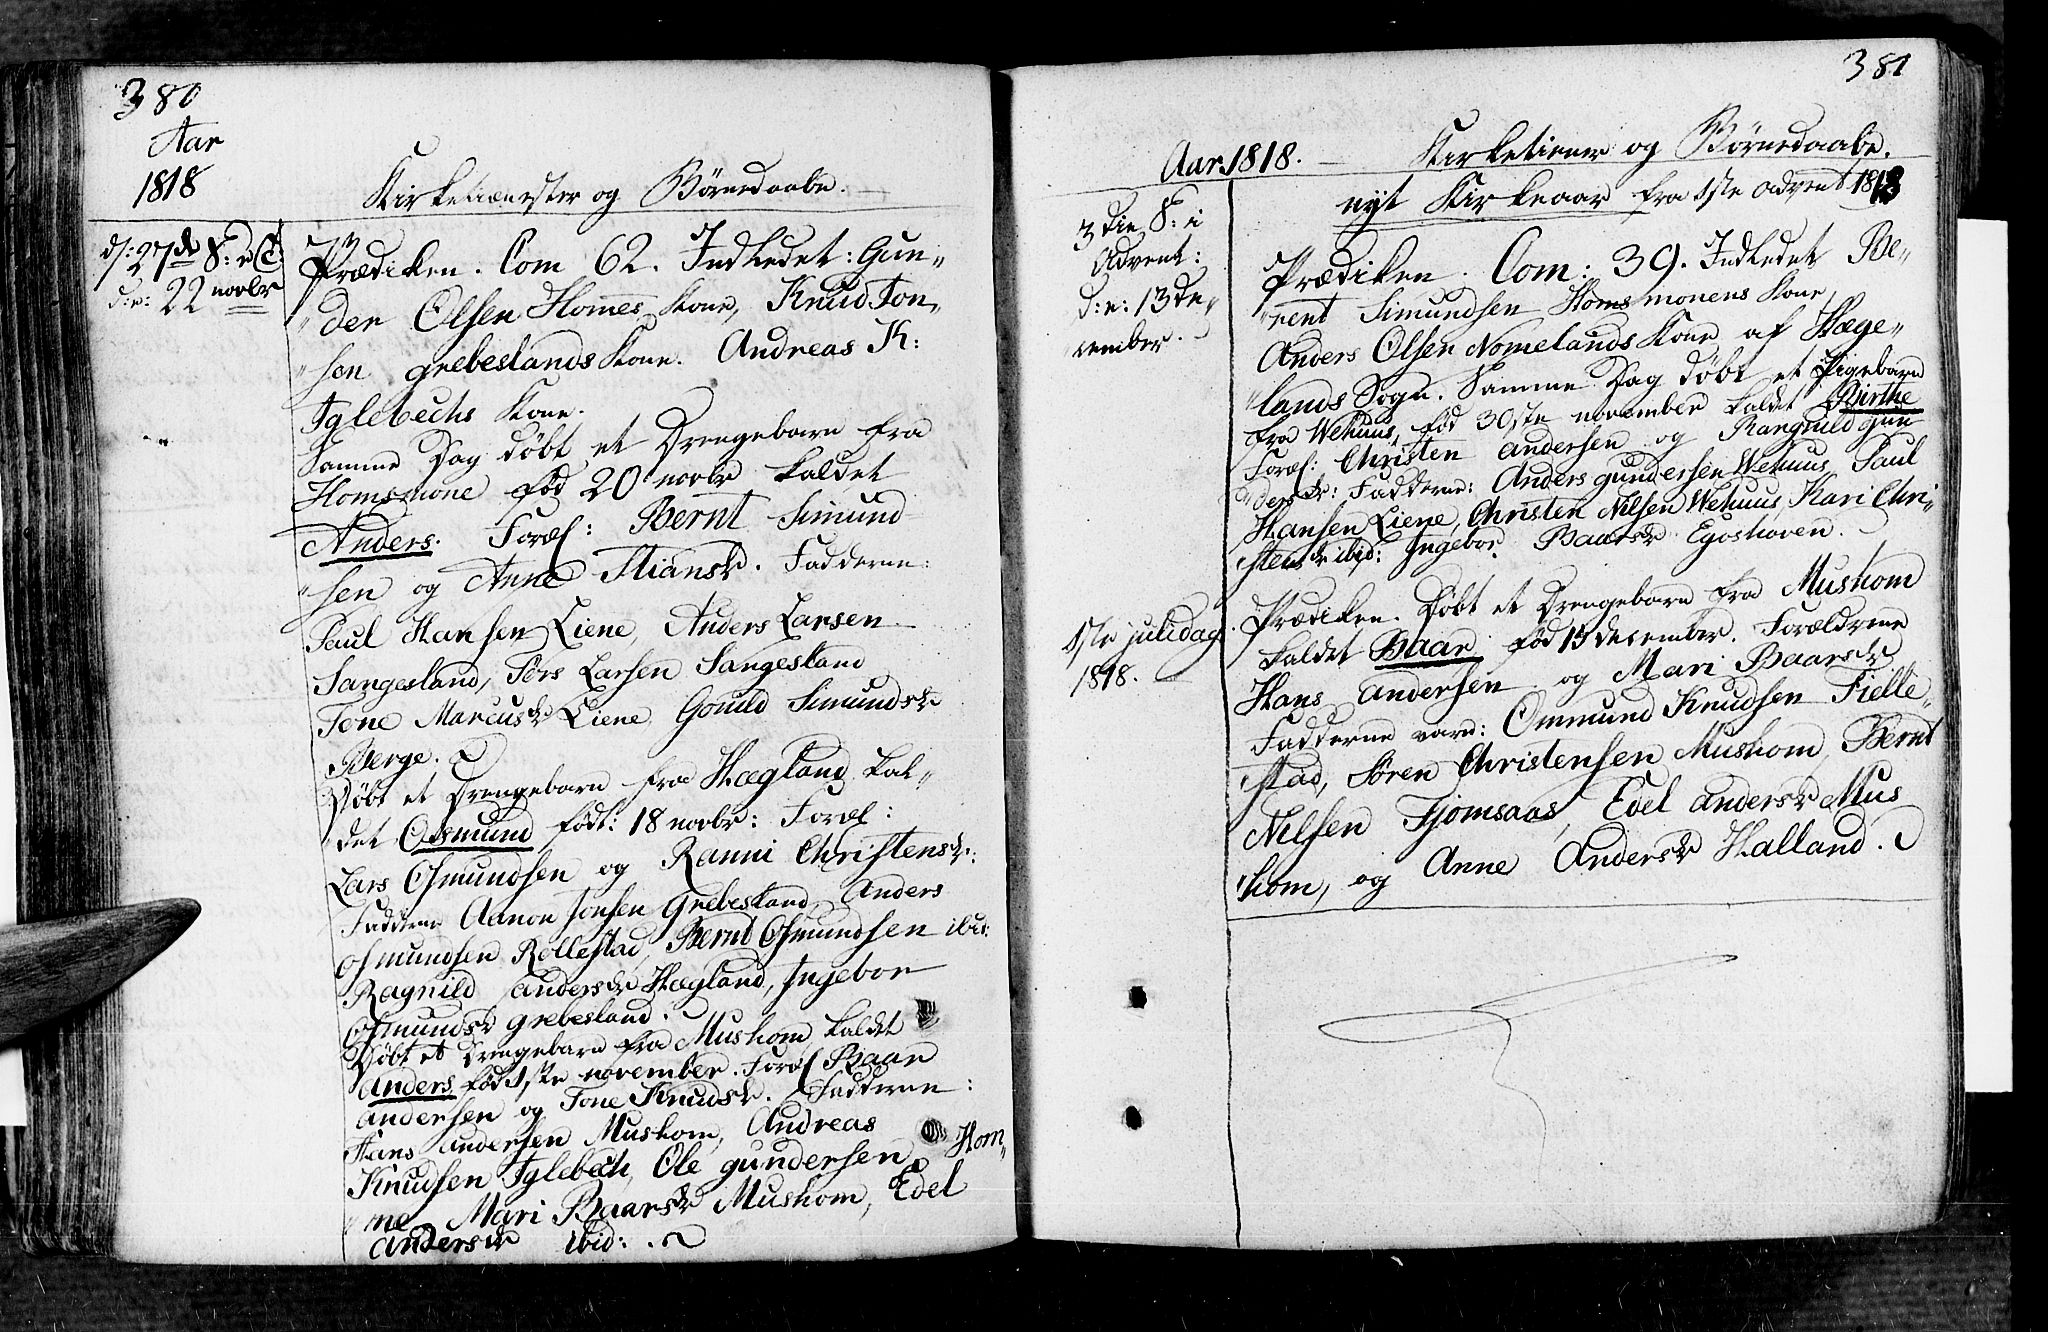 380
Aar
1818
Kirketienester og Børnedaabe.
d: 27de S: e: T:
d: e: 22 novbr
Prædiken. Com 62. Indledet: Gun„
„der Olsen Homes Kone, Knud Ton„
„sen grebeslands Kone. Andreas K:
Iglebechs Kone.
Samme Dag døbt et Drengebarn fra
Homsmone fød 20 novbr kaldet
Anders. Foræl: Bernt Simund
„sen og Anne Stiansdr. Fadderne:
Paul Hansen Liene, Anders Larsen
Sangesland, Törs Larsen Sangesland
Tone Marcusdr Liene, Gonild Simundsdr
Berge.
Døbt et Drengebarn fra Hægland kal„
„det Osmund født: 18 novbr: Foræl:
Lars Osmundsen og Ranni Christensdr:
Fadderne Aanon Jonsen Grebesland, Anders
Osmundsen Rellestad, Bernt Osmundsen ibid:
Ragnild Andersdr Hægland, Ingebor
Osmundsdr grebesland.
Døbt et Drengebarn fra Mushom kaldet
Anders fød 1ste november. Foræl Baar
Andersen og Tone Knudsdr. Fadderne:
Hans Andersen Mushom, Andreas
Knudsen Iglebech, Ole gundersen Hom„
„me Mari Baarsdr Mushom, Edel
Andersdr ibid:.
381
Aar 1818. — Kirketiener og Børnedaabe.
nyt Kirkeaar fra 1ste advent 1818
3die S: i
Advent:
d: e: 13 De„
cember.
Prædiken. Com: 39. Indledet Be„
„rent Simundsen Homsmonens Kone,
Anders Olsen Nomelands Kone af Hæge„
„lands Sogn. Samme Dag døbt et Pigebarn
fra Wehuus, fød 30ste november kaldet Birthe
Foræl: Christen Andersen og Rangnild Gun
„dersdr: Fadderne: Anders gundersen Wehuus, Paul
Hansen Liene, Christen Nilsen Wehuus, Kari Chri„
„stensdr ibid: Ingebor Baarsdr Egoshoven.
1ste juledag
1818.
Prædiken. Døbt et Drengebarn fra Mushom
kaldet Baar fød 13 december. Forældrene
Hans Andersen og Mari Baarsdr
Fadderne vare: Ommund Knudsen Fielle„
„stad, Sören Christensen Mushom, Bernt
Nilsen Tjomsaas, Edel Andersdr Mus
„hom, og Anne Andersdr Halland.